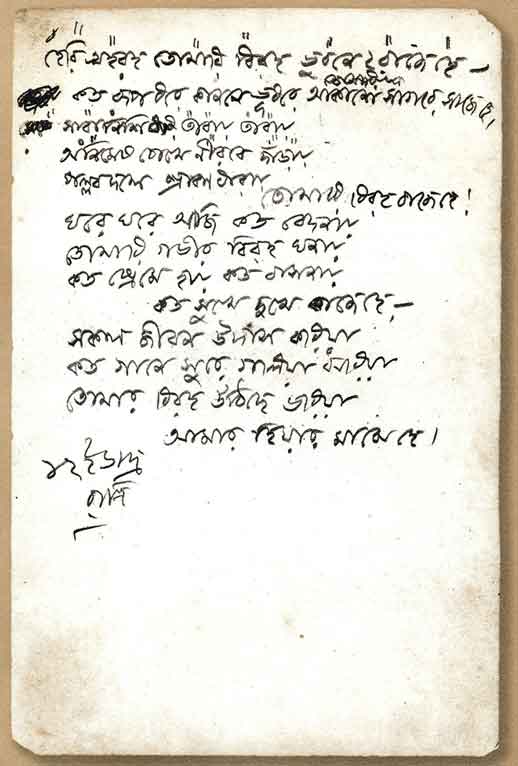 হেরি অহরহ তোমারি বিরহ ভুবনে ভুবনে রাজে হে—
কত রূপ ধরে কাননে ভূধরে আকাশে সাগরে সাজে হে।
সারা নিশি ধরি তারায় তারায়
অনিমেষ চোখে নীরবে দাঁড়ায়
পল্লবদলে শ্রাবণধারায়
তোমারি বিরহ বাজে হে!
ঘরে ঘরে আজি কত বেদনায়
তোমারি গভীর বিরহ ঘনায়
কত প্রেমে হায় কত বাসনায়
কত সুখে দুখে কাজে হে,—
সকল জীবন উদাস করিয়া
কত গানে সুরে গলিয়া ঝরিয়া
তোমার বিরহ উঠিছে ভরিয়া
আমার হিয়ার মাঝে হে।
১২ই ভাদ্র
রাত্রি